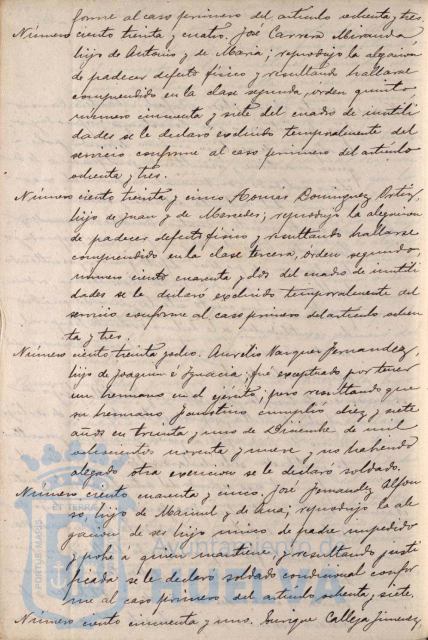 forme al caso primero del articulo ochenta y tres.
Número ciento treinta y cuatro. José Carrera Miranda
hijo de Antonio y de Maria; reprodujo la alegación
de padecer defecto físico y resultando hallarse
comprendido en la clase segunda, orden quinto
número cincuenta y siete del cuadro de inutili
dades se le declaró excluido temporalmente del
servicio conforme al caso primero del artículo
ochenta y tres.
Número ciento treinta y cinco Tomás Dominguez Ortiz,
hijo de Juan y de Mercedes; reprodujo la alegación
de padecer defecto físico y resultando hallarse
comprendido en la clase tercera, orden segundo,
número ciento cuarenta y dos del cuadro de inutili
dades se le declaró excluido temporalmente del
servicio conforme al caso primero del articulo ochen
ta y tres.
Número ciento treinta y ocho. Aurelio Vazquez Fernandez,
hijo de Joaquin é Ignacia: fué exceptuado por tener
un hermano en el ejército; pero resultando que
su hermano Faustino cumplió diez y siete
años en treinta y uno de Diciembre de mil
ochocientos noventa y nueve, y no habiendo
alegado otra exencion se le declaró soldado.
Número ciento cuarenta y cinco. José Fernandez Alfon
so, hijo de Manuel y de Ana; reprodujo la ale
gacion de ser hijo único de padre impedido
y pobre a quien mantiene y resultando justi
ficada se le declaró soldado condicional confor
me al caso primero del articulo ochenta y siete.
Número ciento cincuenta y uno. Enrique Calleja Jimenez,
PORTUS MARIS
ET TERRAE